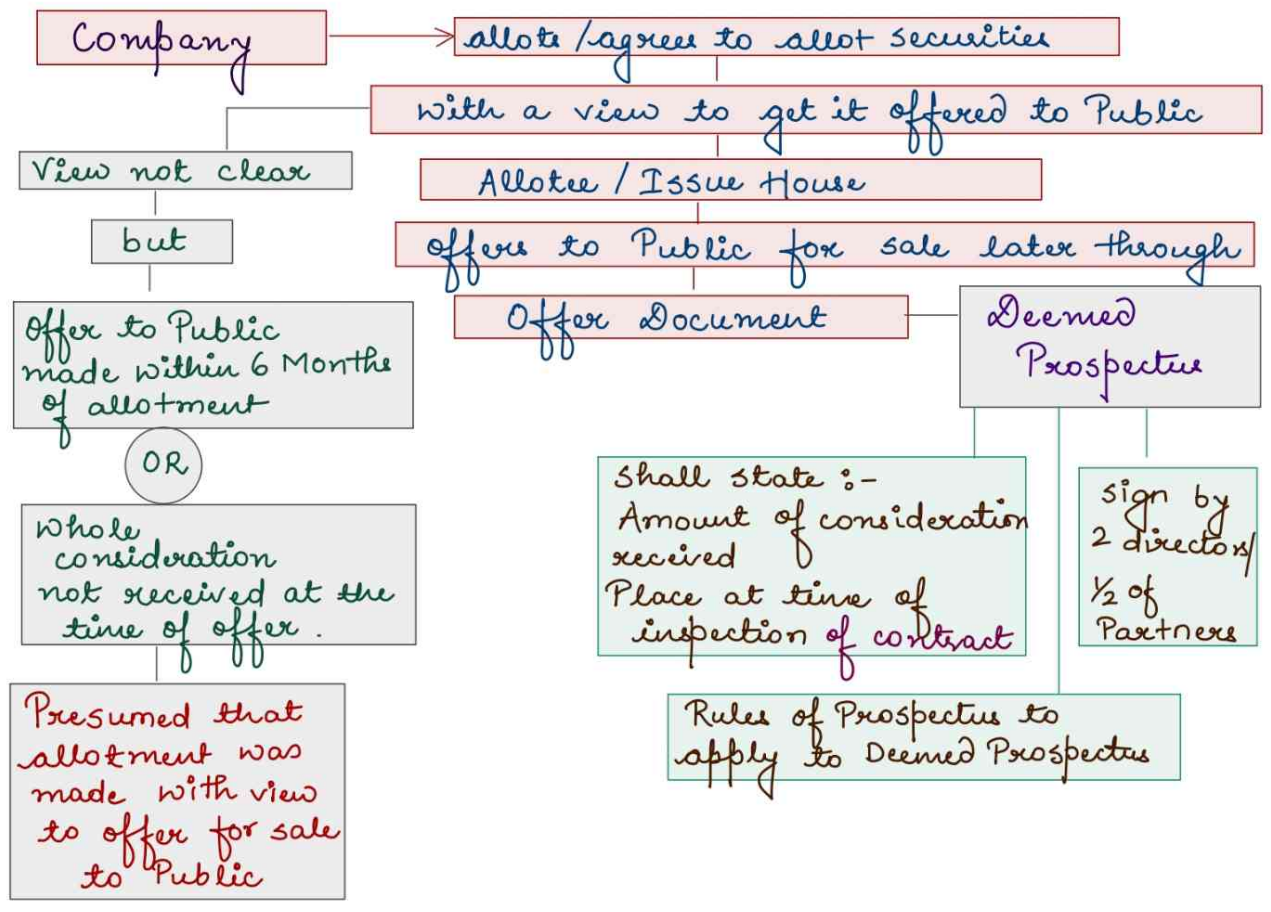 Company
allots/agrees to allot securities
with a view to get it offered to Public
View not clear
Allotee / Issue House
but
offers to Public for sale later through
Offer Document
Deemed
Prospectus
Offer to Public
made within 6 Months
of allotment
OR
Whole
consideration
not received at the
time of offer.
Presumed that
allotment was
made with view
to offer for sale
to Public
Shall state :-
Amount of consideration
received
Place at time of
inspection of contract
sign by
2 directors/
1/2 of
Partners
Rules of Prospectus to
apply to Deemed Prospectus